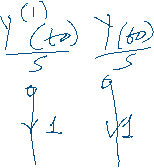 Y^(1)(t0)/s  Y(t0)/s
1  1